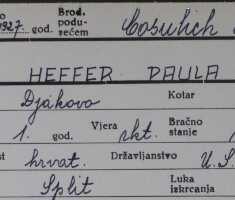 1927. god. Brod. podu-
zećem Cosulich
HEFFER PAULA
Djakovo Kotar
1. god. Vjera rkt. Bračno
stanje
hrvat. Državljanstvo U.S.
Split Luka
iskrcanja